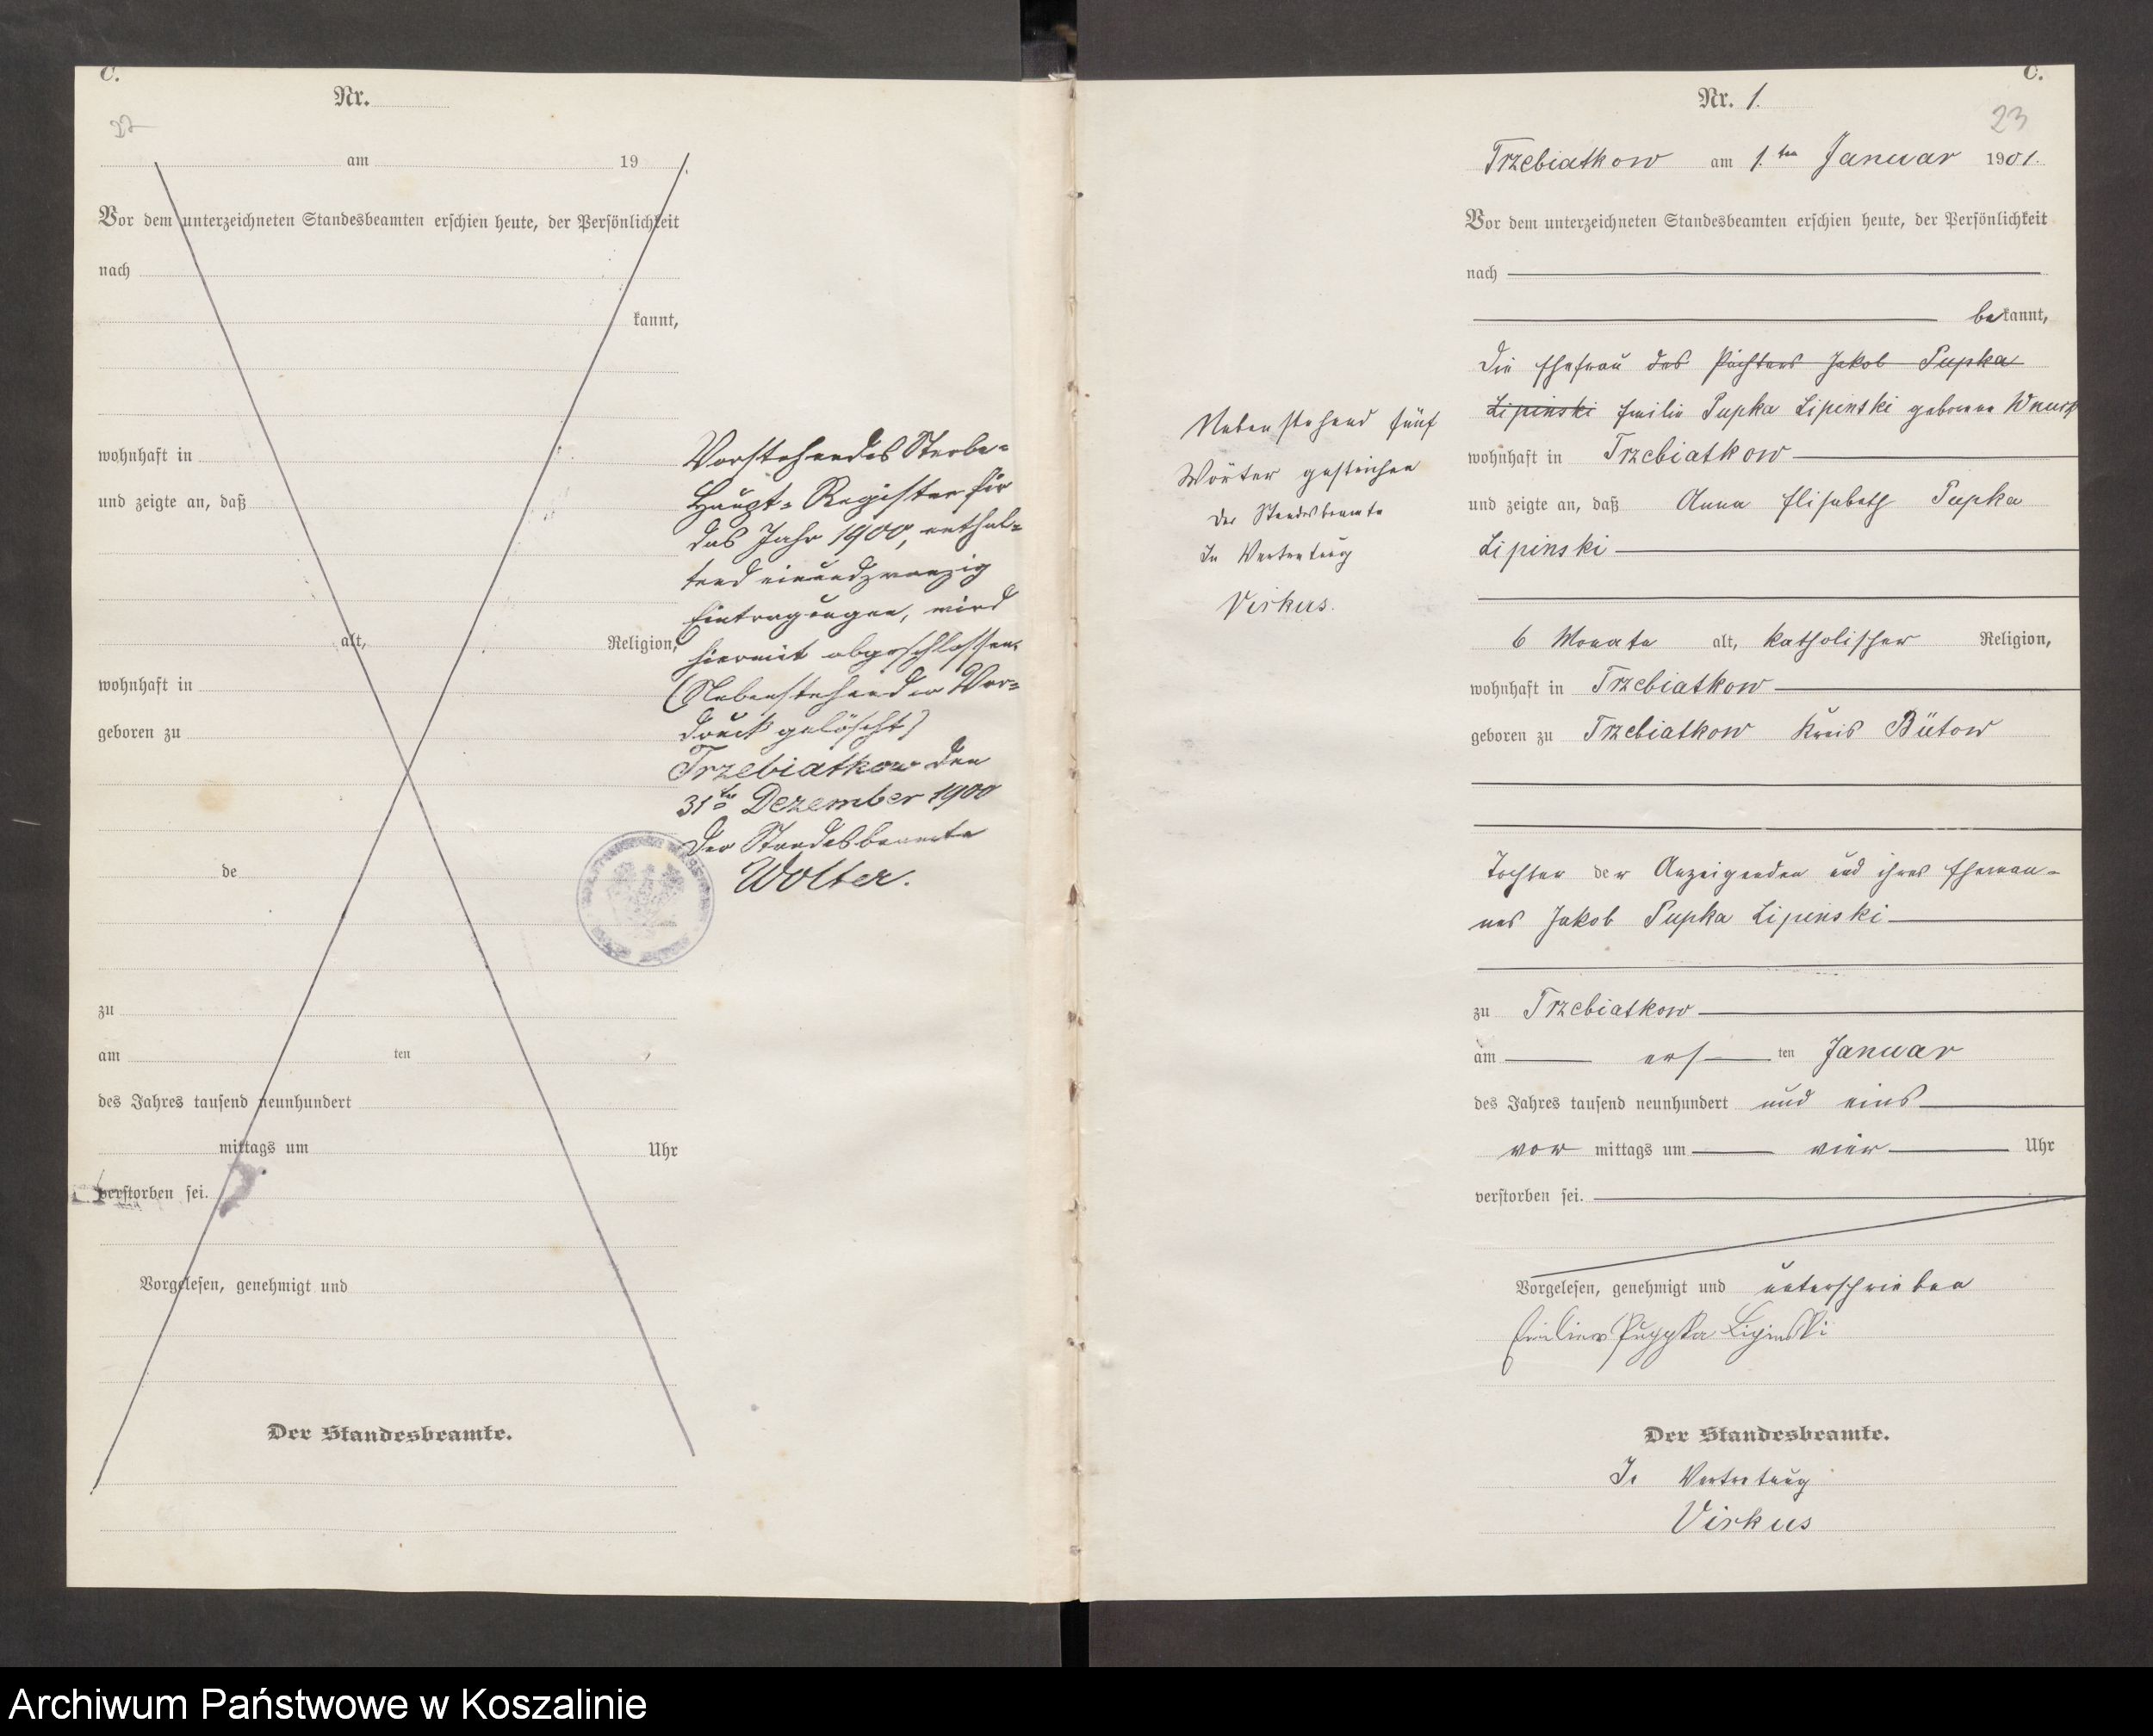 C.
Nr.
am 19
Vor dem unterzeichneten Standesbeamten erschien heute, der Persönlichkeit
nach
kannt,
wohnhaft in
und zeigte an, daß
alt, Religion,
wohnhaft in
geboren zu
de
zu
am ten
des Jahres tausend neunhundert
mittags um Uhr
verstorben sei.
Vorgelesen, genehmigt und
Der Standesbeamte.
Vorstehendes Sterbe-
Haupt-Register für
das Jahr 1900, enthal-
tend einundzwanzig
Eintragungen, wird
hiermit abgeschlossen.
(Nebenstehender Vor-
druck gelöscht)
Trzebiatkow den
31ten Dezember 1900
Der Standesbeamte
Wolter.
C.
Nr. 1.
23
Trzebiatkow am 1.ten Januar 1901.
Vor dem unterzeichneten Standesbeamten erschien heute, der Persönlichkeit
nach
bekannt,
die Ehefrau des Pächters Jakob Pupka
Lipinski Emilie Pupka Lipinski geborene
wohnhaft in Trzebiatkow
und zeigte an, daß Anna Elisabeth Pupka
Lipinski
6 Monate alt, katholischer Religion,
wohnhaft in Trzebiatkow
geboren zu Trzebiatkow Kreis Bütow
Tochter der Anzeigenden und ihres Eheman-
nes Jakob Pupka Lipinski
zu Trzebiatkow
am ersten Januar
des Jahres tausend neunhundert und eins
vor mittags um vier Uhr
verstorben sei.
Vorgelesen, genehmigt und unterschrieben
Pupka Lipinski
Der Standesbeamte.
In Vertretung
Virkus
Nebenstehend fünf
Wörter gestrichen
Der Standesbeamte
In Vertretung
Virkus.
Archiwum Państwowe w Koszalinie